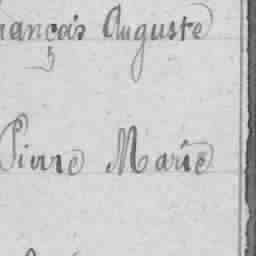 rançois Auguste
Pierre Marie